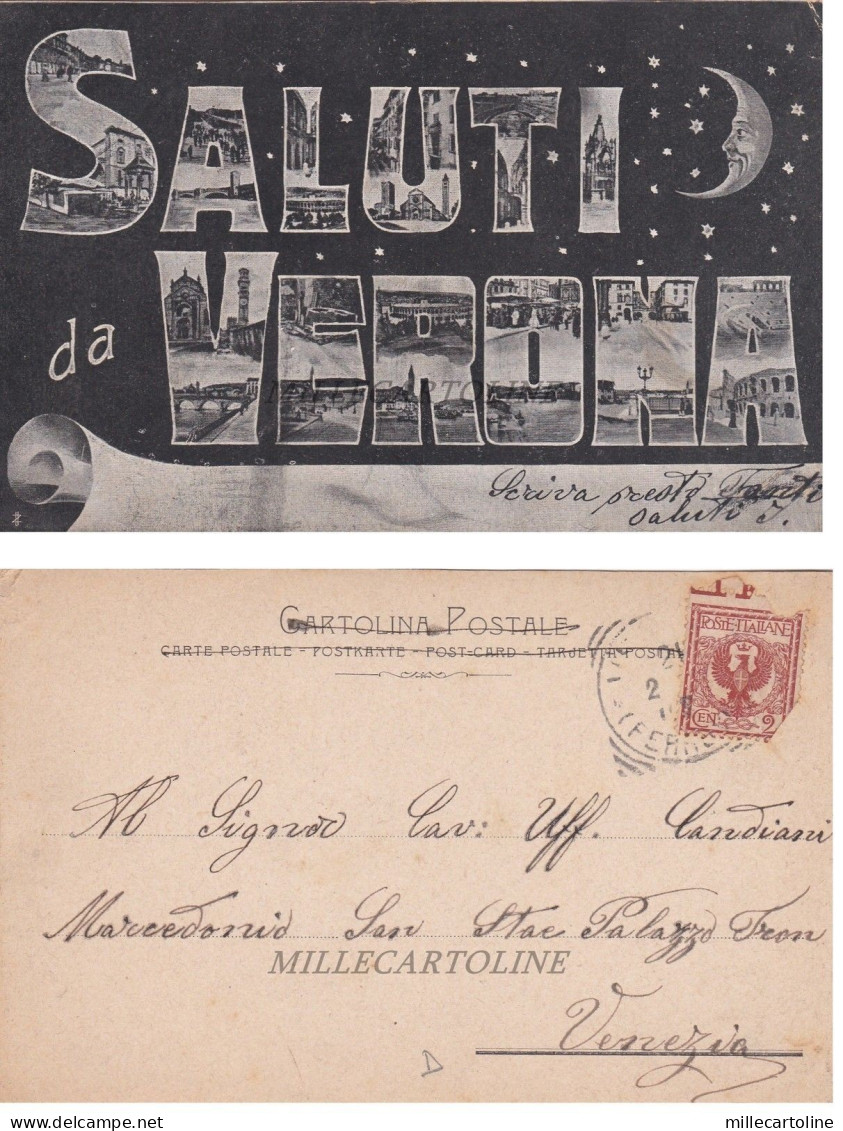 SALUTI
da VERONA
MILLECARTOLINE
Scriva presto Tanti
saluti J.
CARTOLINA POSTALE
CARTE POSTALE - POSTKARTE - POST-CARD - TARJETTA POSTAL
POSTE·ITALIANE
CEN. 2
Al Signor Cav: Uff. Candiani
Marcedonio San Stae Palazzo Tron
MILLECARTOLINE
Venezia
D
millecartoline